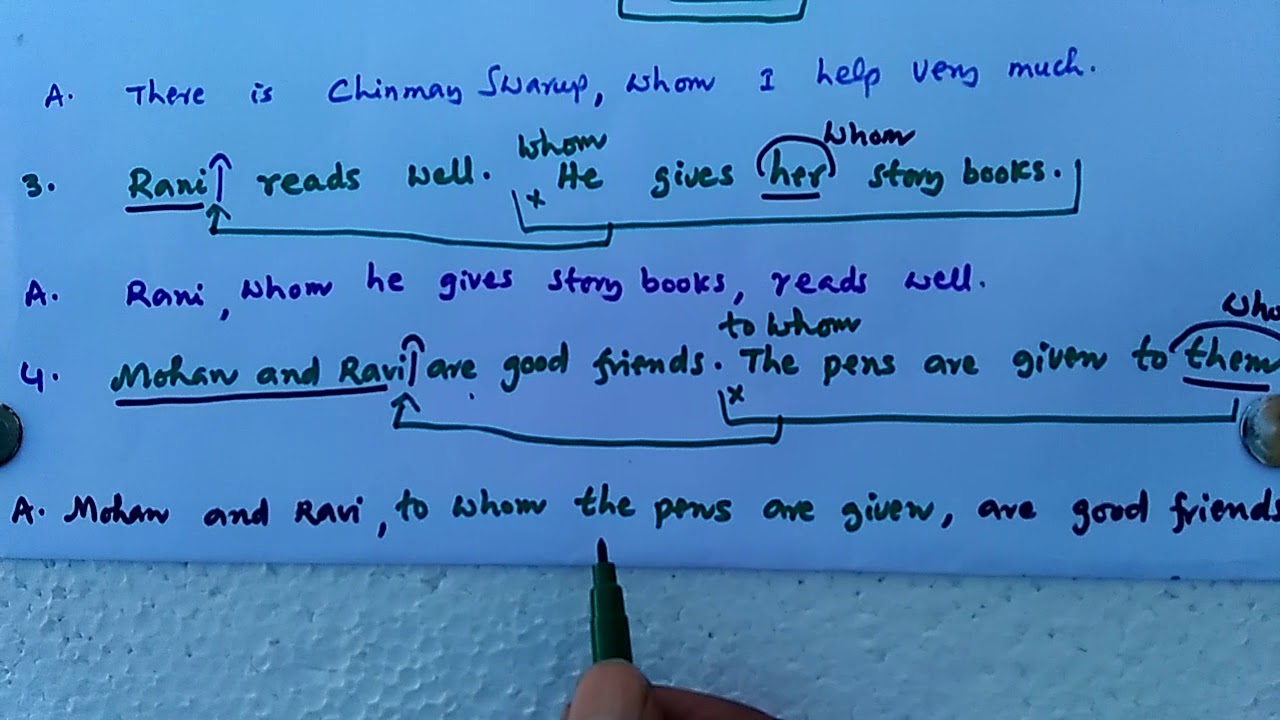 A. There is Chinmay Swarup, whom I help very much.
whom whom
3. Rani reads well. He gives her story books.
x
A. Rani, whom he gives story books, reads well.
to whom
4. Mohan and Ravi are good friends. The pens are given to them
x
A. Mohan and Ravi, to whom the pens are given, are good friends